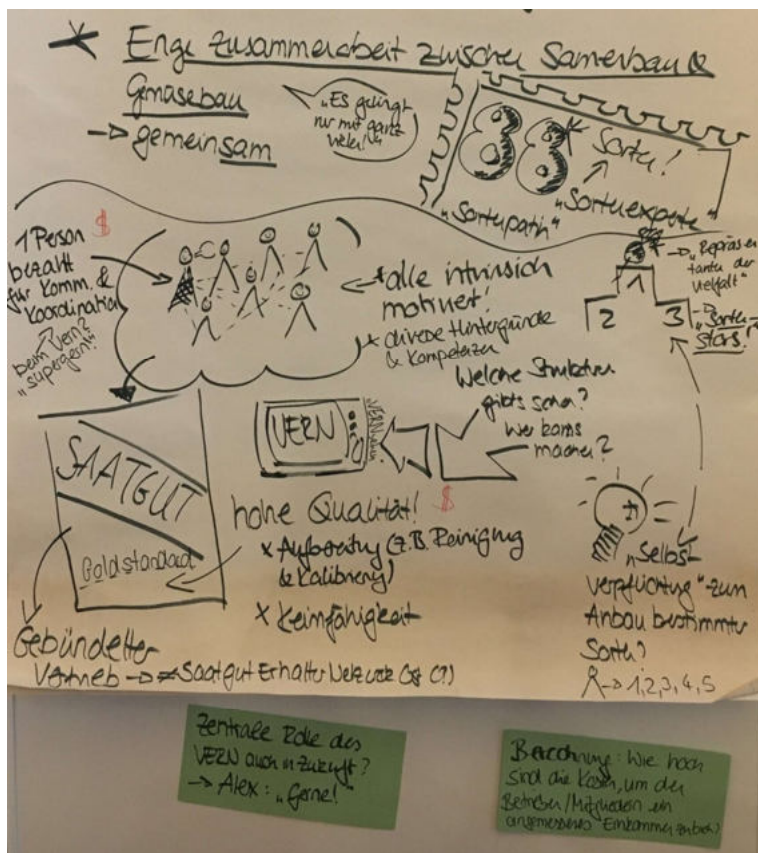 Enge Zusammenarbeit zwischen Samenbau &
Gemüsebau
→ gemeinsam
"Es gelingt
nur mit ganz
vielen!"
88* Sorten!
"Sortenpatin" "Sortenexperte"
1 Person $
bezahlt
für Komm. &
Koordination
beim Vern?
"supergern!"
* alle intrinsisch
motiviert!
x diverse Hintergründe
& Kompetenzen
1
2 3
→ "Repräsen
tanten der
Vielfalt"
→ "Sorten-
Stars!"
Welche Strukturen
gibts schon?
Wer kanns
machen?
VERN
SAATGUT
Goldstandard
hohe Qualität! $
x Aufbereitung (z.B. Reinigung
& Kalibrierung)
x Keimfähigkeit
Gebündelter
Vertrieb → Saatgut Erhalter Netzwerk
"Selbst-
verpflichtung" zum
Anbau bestimmter
Sorten?
→ 1,2,3,4,5
Zentrale Rolle des
VERN auch in Zukunft?
→ Alex: "Gerne!"
Berechnung: Wie hoch
sind die Kosten, um den
Betrieben/Mitgliedern ein
angemessenes Einkommen